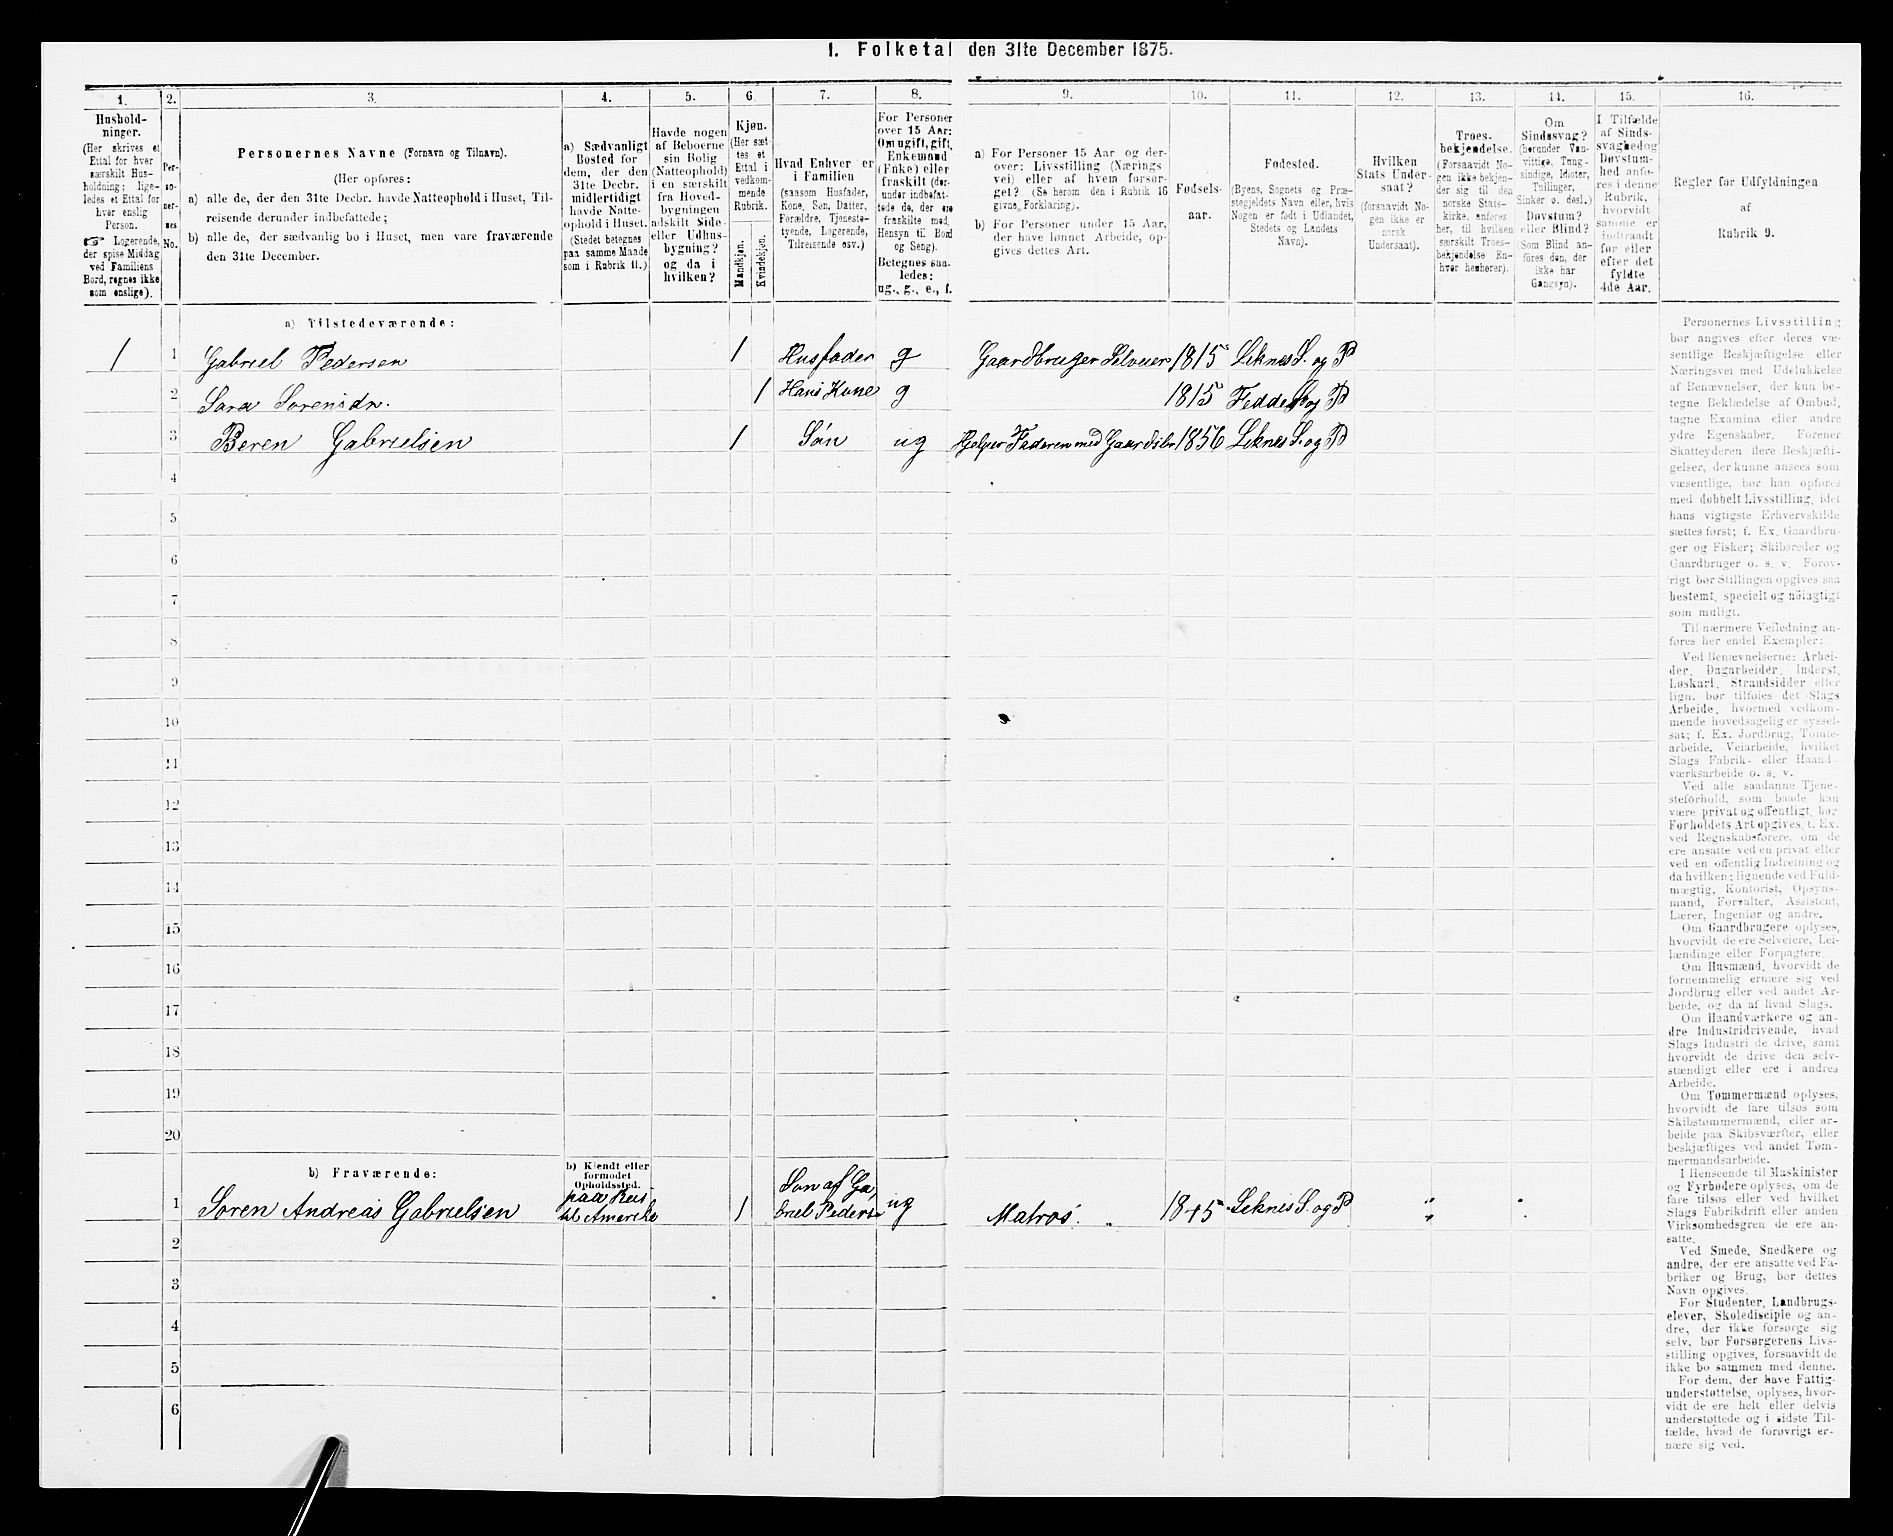 1. Folketal den 31te December 1875.
1. 2. 3. 4. 5. 6. 7. 8. 9. 10. 11. 12. 13. 14. 15. 16.
Hushold-
ninger.
(Her skrives et
Ettal for hver
særskilt Hus-
holdning; lige-
ledes et Ettal for
hver enslig
Person.
☞ Logerende,
der spise Middag
ved Familiens
Bord, regnes ikke
som enslige).
Per-
so-
ner-
nes
No.
Personernes Navne (Fornavn og Tilnavn).
(Her opføres:
a) alle de, der den 31te Decbr. havde Natteophold i Huset, Til-
reisende derunder indbefattede;
b) alle de, der sædvanlig bo i Huset, men vare fraværende
den 31te December.
a) Sædvanligt
Bosted for
dem, der den
31te Decbr.
midlertidigt
havde Natte-
ophold i Huset.
(Stedet betegnes
paa samme Maade
som i Rubrik 11.)
Havde nogen
af Beboerne
sin Bolig
(Natteophold)
i en særskilt
fra Hoved-
bygningen
adskilt Side-
eller Udhus-
bygning?
og da i
hvilken?
Kjøn.
(Her sæt
tes et
Ettal i
vedkom-
mende
Rubrik.
Mandkjøn.
Kvindekjøn.
Hvad Enhver er
i Familien
(saasom Husfader,
Kone, Søn, Datter,
Forældre, Tjeneste-
tyende, Logerende,
Tilreisende osv.)
For Personer
over 15 Aar:
Om ugift, gift,
Enkemand
(Enke) eller
fraskilt (der-
under indbefat-
tede de, der ere
fraskilte med
Hensyn til Bord
og Seng).
Betegnes saa-
ledes:
ug., g., e., f.
a) For Personer 15 Aar og der-
over: Livsstilling (Nærings
vei) eller af hvem forsør-
get? (Se herom den i Rubrik 16
givne Forklaring).
b) For Personer under 15 Aar,
der have lønnet Arbeide, op-
gives dettes Art.
Fødsels-
aar.
Fødested.
(Byens, Sognets og Præ-
stegjeldets Navn eller, hvis
Nogen er født i Udlandet,
Stedets og Landets
Navn).
Hvilken
Stats Under-
saat?
(forsaavidt No-
gen ikke er
norsk
Undersaat).
Troes-
bekjendelse.
(Forsaavidt No-
gen ikke bekjen-
der sig til den
norske Stats-
kirke, anføres
her, til hvilken
særskilt Troes-
bekjendelse En-
hver henhører).
Om
Sindssvag?
(herunder Van-
vittige, Tung-
sindige, Idioter,
Tullinger,
Sinker o. desl.)
Døvstum?
eller Blind?
(Som Blind an-
føres den, der
ikke har
Gangsyn).
I Tilfælde
af Sinds-
svaghed og
Døvstum-
hed anfø-
res i denne
Rubrik,
hvorvidt
samme er
indtraadt
før eller
efter det
fyldte
4de Aar.
Regler for Udfyldningen
af
Rubrik 9.
a) Tilstedeværende:
1 1 Gabriel Pedersen 1 Husfader g Gaardbruger Selveier 1815 Leknes S. og P
2 Sara Sorensdr. 1 Hans Kone g 1815 Fedde S. og P
3 Beren Gabrielsen 1 Søn ug Hjelper Faderen med Gaardsbr 1856 Leknes S. og P
4
5
6
7
8
9
10
11
12
13
14
15
16
17
18
19
20
b) Fraværende:
b) Kjendt eller
formodet
Opholdssted.
1 Soren Andreas Gabrielsen paa Reis
til Amerika 1 Søn af Ga,
briel Peders ug Matros. 1845 Leknes S. og P " "
2
3
4
5
6
Personernes Livsstilling
bør angives efter deres væ-
sentlige Beskjæftigelse eller
Næringsvei med Udelukkelse
af Benævnelser, der kun be-
tegne Beklædelse af Ombud,
tagne Examina eller andre
ydre Egenskaber. Forener
Skatteyderen flere Beskjæfti-
gelser, der kunne ansees som
væsentlige, bør han opføres
med dobbelt Livsstilling, idet
hans vigtigste Erhvervskilde
sættes først; f. Ex. Gaardbru-
ger og Fisker; Skibsreder og
Gaardbruger o. s. v. Forøv-
rigt bør Stillingen opgives saa
bestemt, specielt og nøiagtigt
som muligt.
Til nærmere Veiledning an-
føres her endel Exempler:
Ved Benævnelserne: Arbei-
der, Dagarbeider, Inderst,
Løskarl, Strandsidder eller
lign. bør tilføies det Slags
Arbeide, hvormed vedkom-
mende hovedsagelig er syssel-
sat; f. Ex. Jordbrug, Tømte-
arbeide, Veiarbeide, hvilket
Slags Fabrik- eller Haand-
værksarbeide o. s. v.
Ved alle saadanne Tjene-
steforhold, som baade kan
være privat og offentligt, bør
Forholdets Art opgives, t. Ex.
ved Regnskabsførere, om de
ere ansatte ved en privat eller
ved en offentlig Indretning og
da hvilken; lignende ved Fuld-
mægtig, Kontorist, Opsyns-
mand, Forvalter, Assistent,
Lærer, Ingeniør og andre.
Om Gaardbrugere oplyses,
hvorvidt de ere Selveiere, Lei-
lændinge eller Forpagtere.
Om Husmænd, hvorvidt de
fornemmelig ernære sig ved
Jordbrug eller ved andet Ar-
beide, og da af hvad Slags.
Om Haandværkere og an-
dre Industridrivende, hvad
Slags Industri de drive, samt
hvorvidt de drive den selv-
stændigt eller ere i andres
Arbeide.
Om Tømmermænd oplyses,
hvorvidt de fare tilsøs som
Skibstømmermænd, eller ar-
beide paa Skibsværfter, eller
beskjæftiges ved andet Tøm-
mermandsarbeide.
I Henseende til Maskinister
og Fyrbødere oplyses, om de
fare tilsøs eller ved hvilket
Slags Fabrikdrift eller anden
Virksomhedsgren de ere an-
satte.
Ved Smede, Snedkere og
andre, der ere ansatte ved Fa-
briker og Brug, bør dettes
Navn opgives.
For Studenter, Landbrugs-
elever, Skoledisciple og an-
dre, der ikke forsørge sig
selv, bør Forsørgerens Livs-
stilling opgives, forsaavidt de
ikke bo sammen med denne.
For dem, der have Fattig-
understøttelse, oplyses, hvor-
vidt de ere helt eller delvis
understøttede og i sidste Til-
fælde, hvad de forøvrigt er-
nære sig ved.